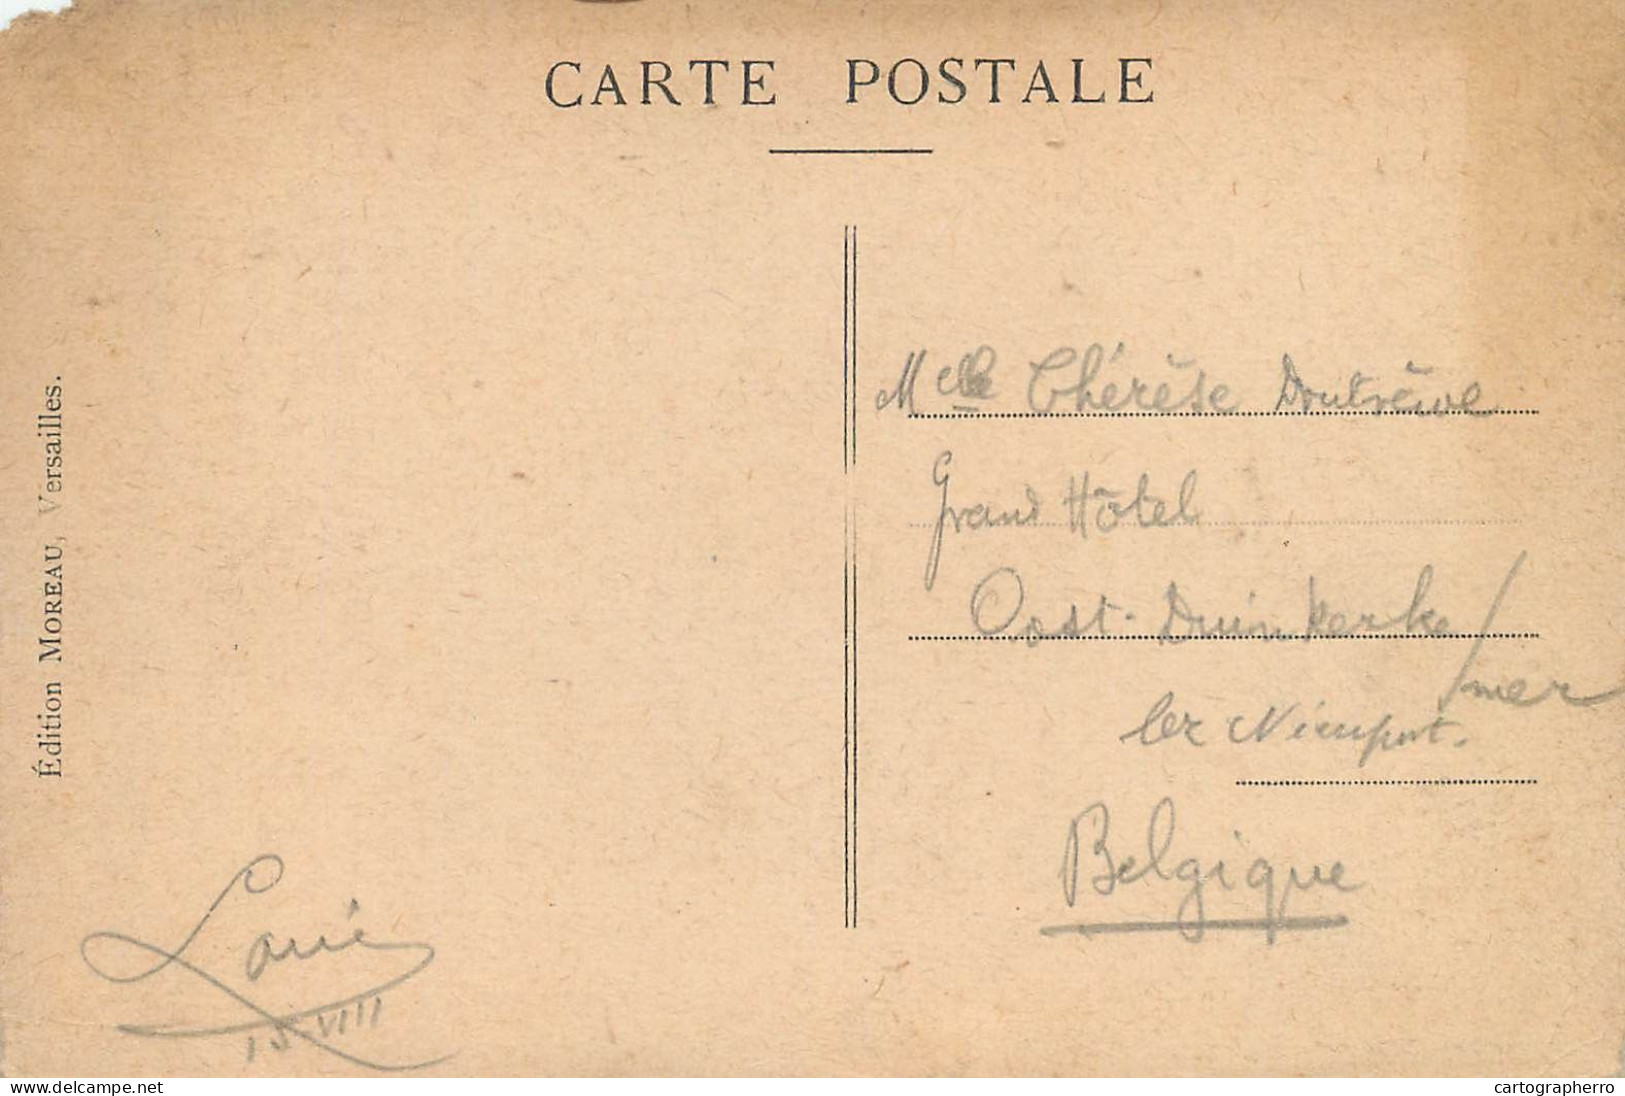 CARTE POSTALE
Édition MOREAU, Versailles.
Melle Thérèse
Grand Hôtel
Oost-Duinkerke / mer
lez Nieuport.
Belgique
15 VIII
delcampe.net
cartographerro